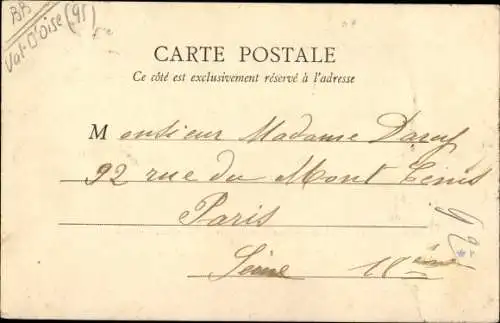 BB
Val-D'Oise (95)
CARTE POSTALE
Ce côté est exclusivement réservé à l'adresse
Monsieur Madame Darcy
92 rue du Mont Cenis
Paris
Seine 18ème